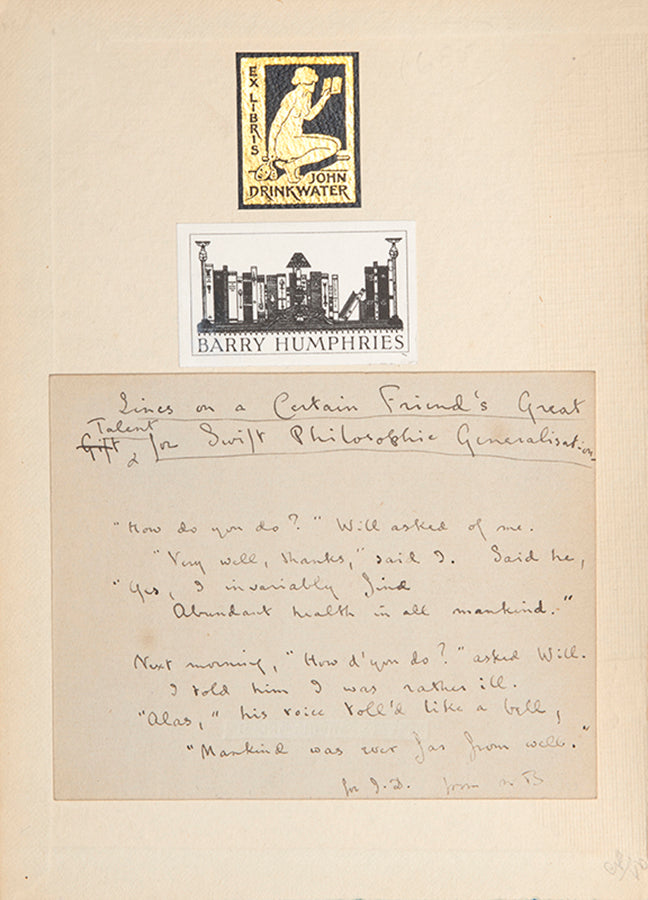 EX LIBRIS
JOHN
DRINKWATER
BARRY HUMPHRIES
Lines on a Certain Friend's Great
Talent
Gift for Swift Philosophic Generalisation.
"How do you do?" Will asked of me.
"Very well, thanks," said I. Said he,
"Yes, I invariably find
Abundant health in all mankind."
Next morning, "How d'you do?" asked Will.
I told him I was rather ill.
"Alas," his voice toll'd like a bell,
"Mankind was ever far from well."
for J.D. from M B